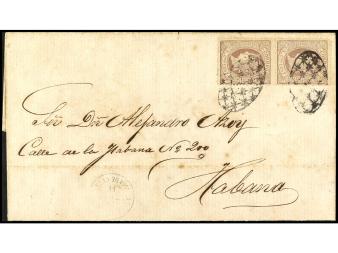 Sr. Dn. Alejandro
Calle de la Habana No. 200
Habana